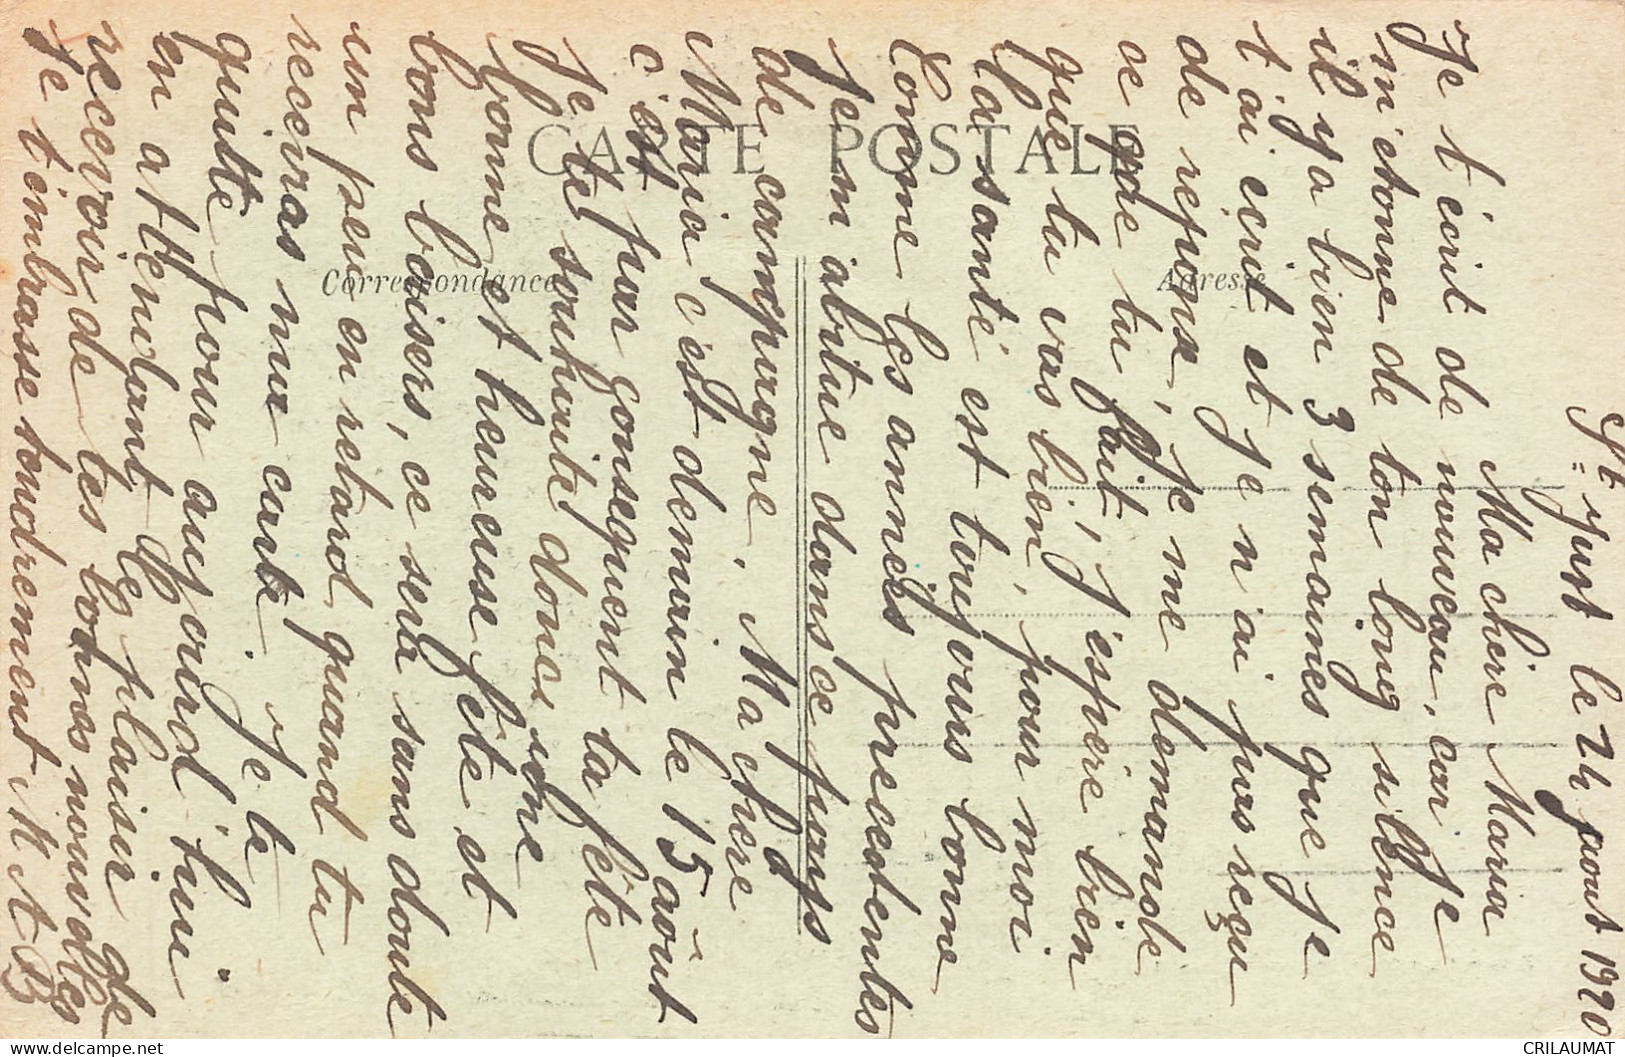 St Just le 24 aout 1920
Ma chère Maria
Je t'écrit de nouveau, car Je
m'etonne de ton long silence
il y a bien 3 semaines que Je
t'ai ecrit et Je n'ai pas reçu
de reponse, Je me demande
ce que tu fait, J'espère bien
que tu vas bien, pour moi
la santé est toujours bonne
Comme les années precedentes
Je m'abitue dans ce pays
de campagne. Ma chère
Maria c'est demain le 15 août
c'est par consequent ta fête
Je te souhaite donc une
bonne et heureuse fête et
bons baisers, ce sera sans doute
un peu en retard quand tu
receviras ma carte. Je te
quitte pour aujourd'hui
en attendant le plaisir de
recevoir de tes bonnes nouvelles
Je t'embrasse tendrement M A B
CARTE POSTALE
Correspondance
Adresse
CRILAUMAT